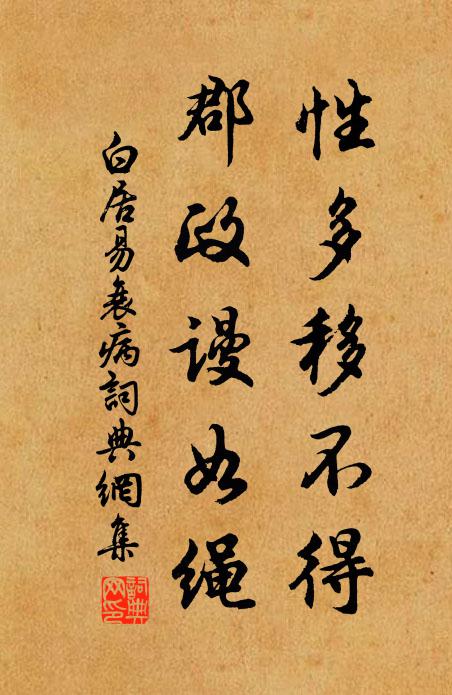 性多移不得
郡政谩如绳
白居易衰病詞典網集
詞典网印